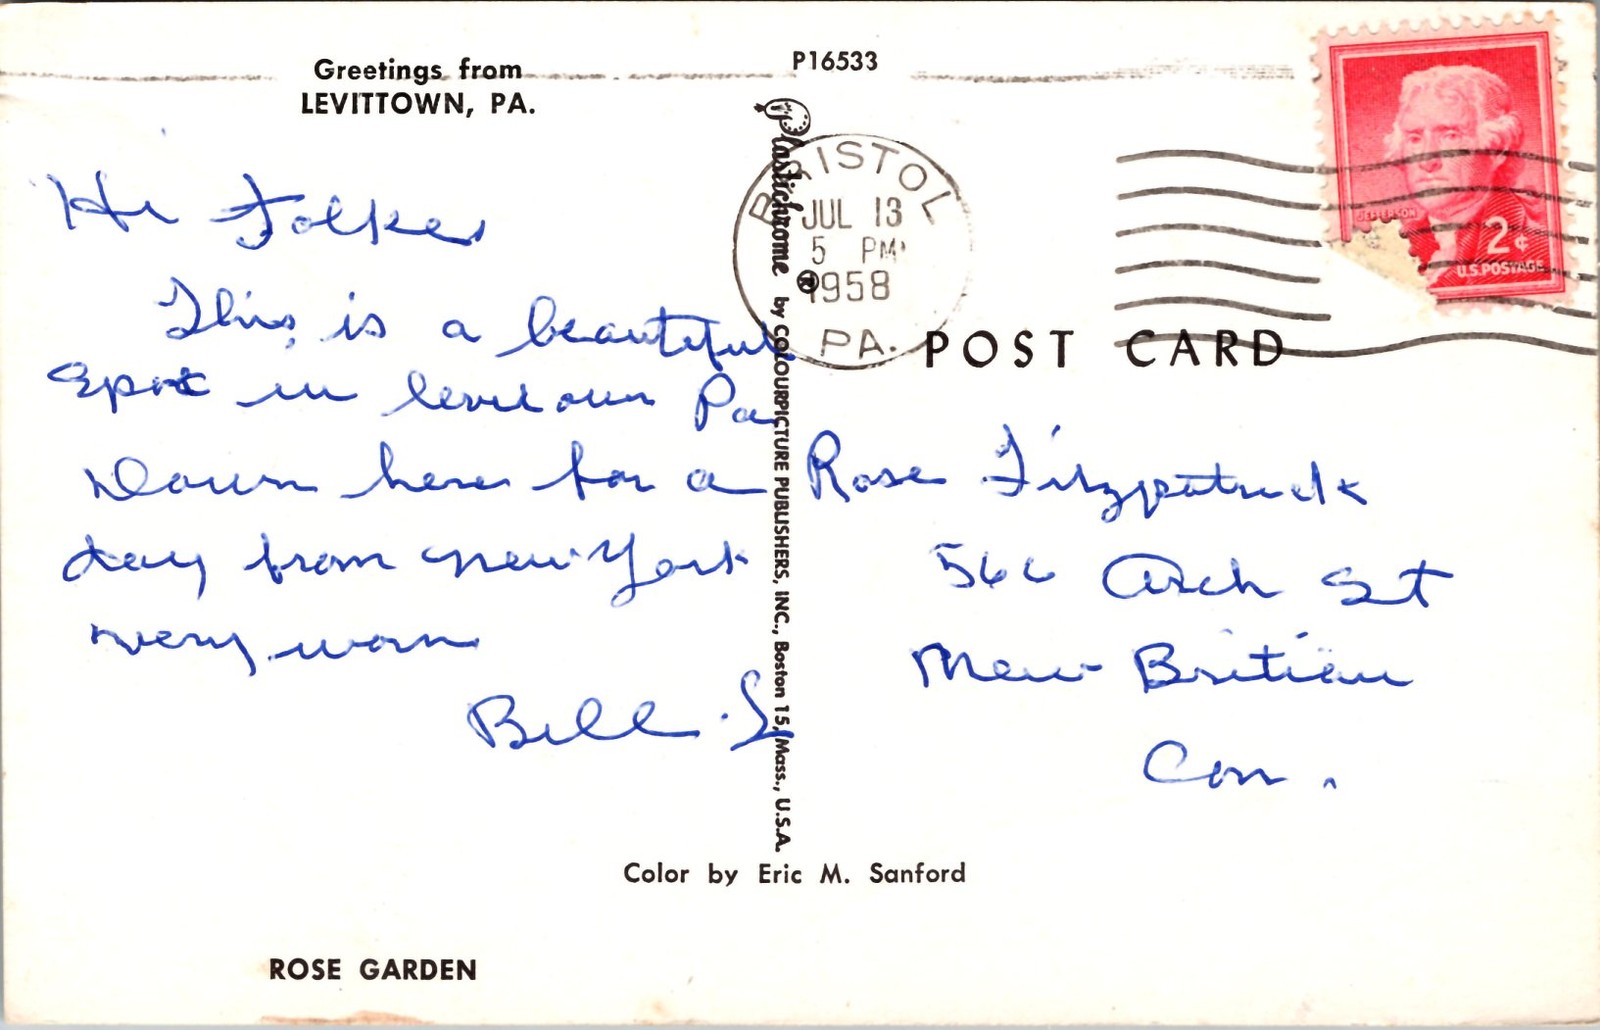 Greetings from
LEVITTOWN, PA.
P16533
Hi Folkes
This is a beautiful
Spot in levit own Pa
Down here for a
day from new York
very warm
Bill S
Plastichrome ® by COLOURPICTURE PUBLISHERS, INC., Boston 15, Mass., U.S.A.
BRISTOL
JUL 13
5 PM
1958
PA.
JEFFERSON
2¢
U.S. POSTAGE
POST CARD
Rose Fitzpatrick
566 Arch St
New Britian
Con.
Color by Eric M. Sanford
ROSE GARDEN